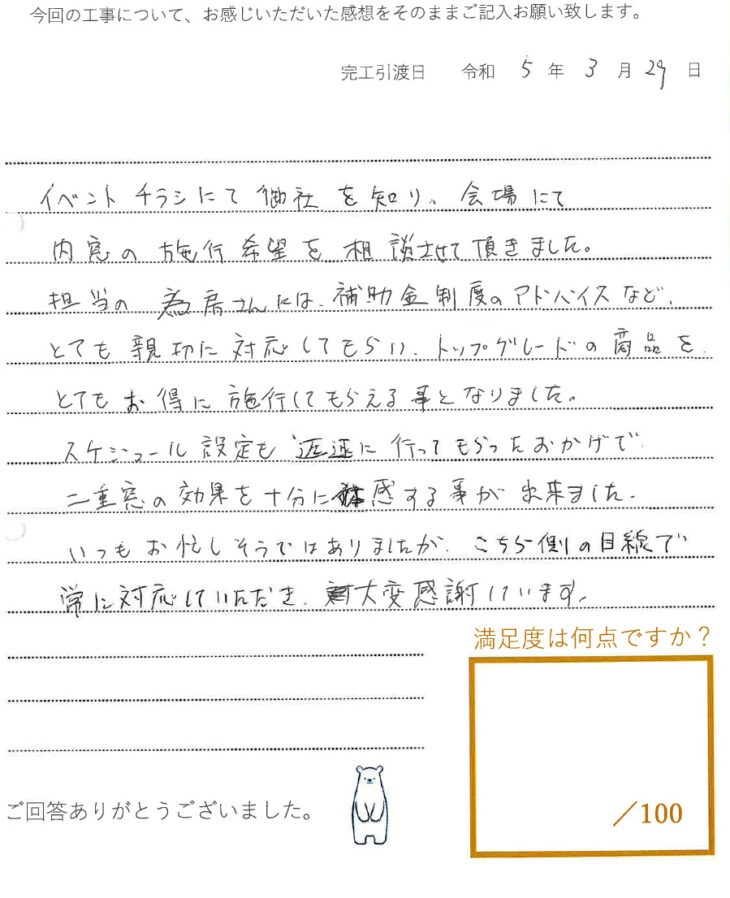 今回の工事について、お感じいただいた感想をそのままご記入お願い致します。
完工引渡日 令和 5 年 3 月 29 日
イベントチラシにて御社を知り、会場にて
内窓の施行希望を相談させて頂きました。
担当の為房さんには、補助金制度のアドバイスなど、
とても親切に対応してもらい、トップグレードの商品を
とてもお得に施行してもらえる事となりました。
スケジュール設定も迅速に行ってもらったおかげで
二重窓の効果を十分に体感する事が出来ました。
いつもお忙しそうではありましたが、こちら側の目線で
常に対応していただき、大変感謝しています。
満足度は何点ですか？
／100
ご回答ありがとうございました。